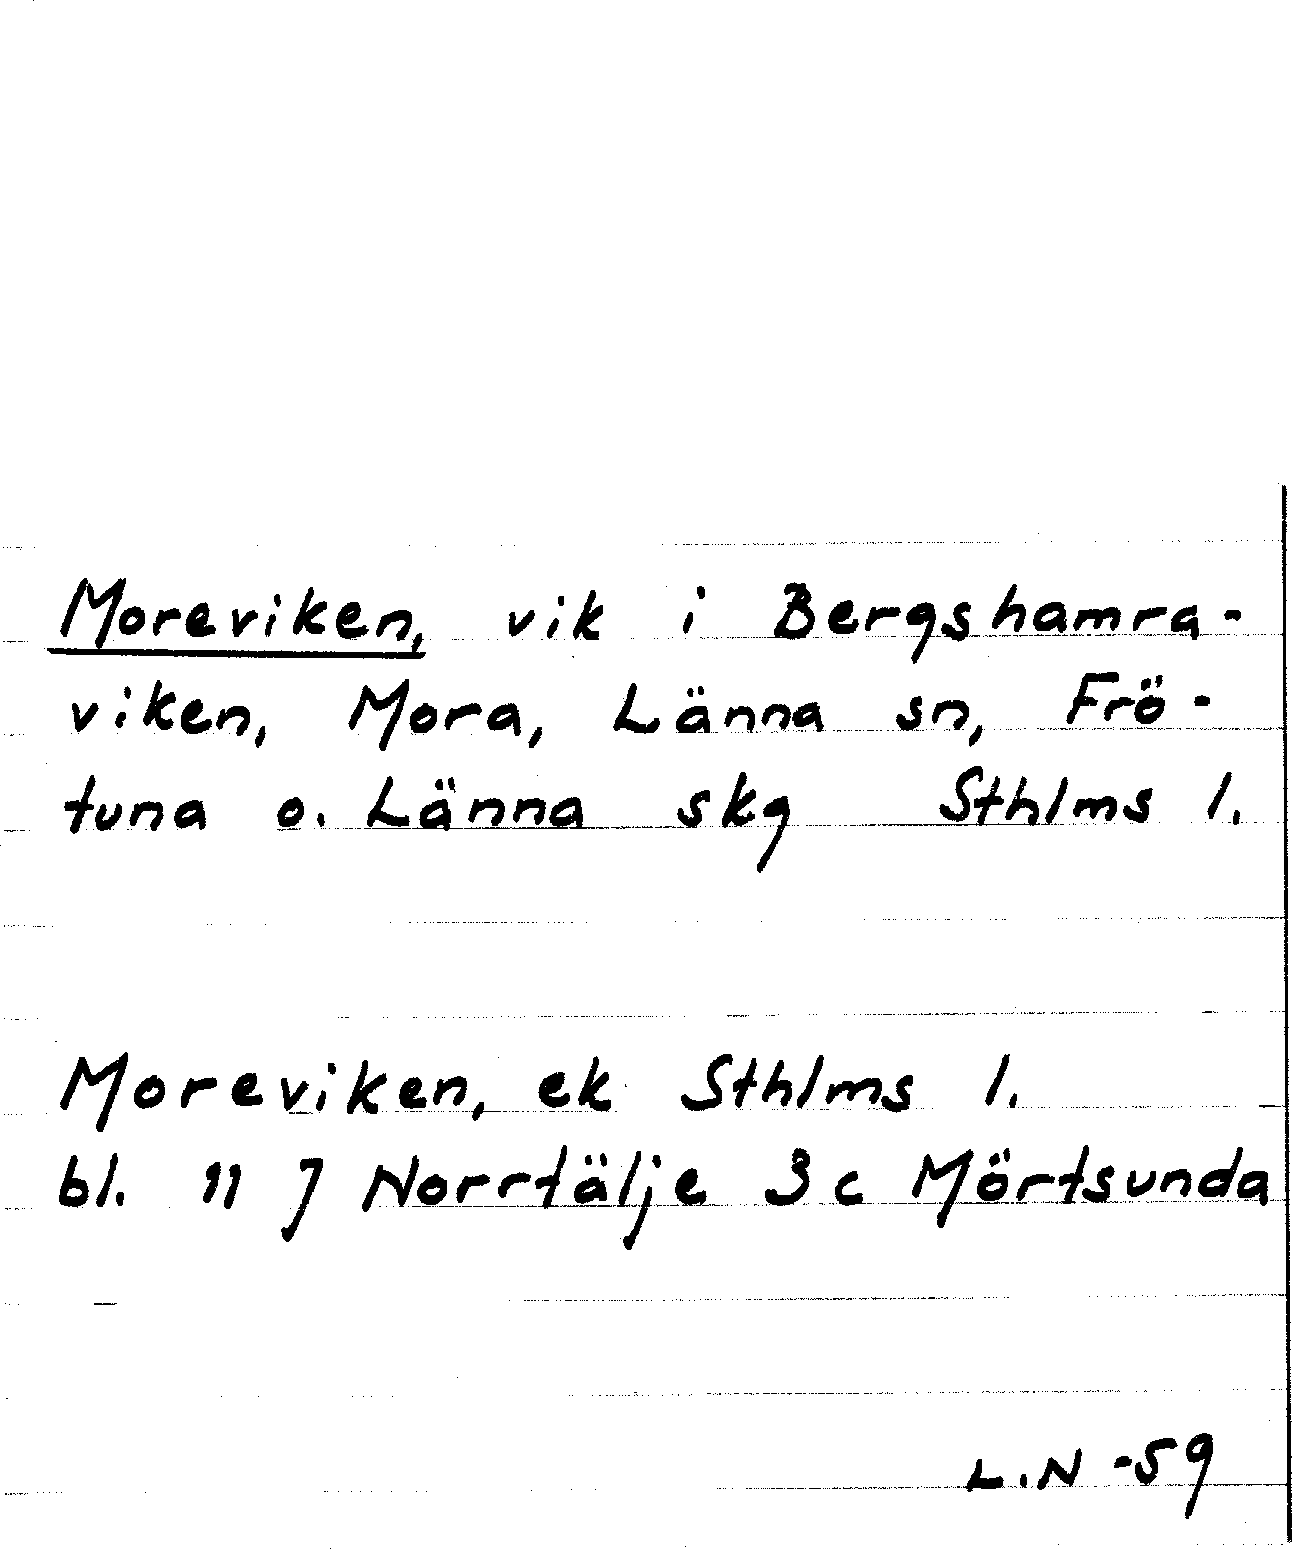 Moreviken, vik i Bergshamra-
viken, Mora, Länna sn, Frö-
tuna o. Länna skg Sthlms l.
Moreviken, ek Sthlms l.
bl. 11 J Norrtälje 3c Mörtsunda
L.N -59